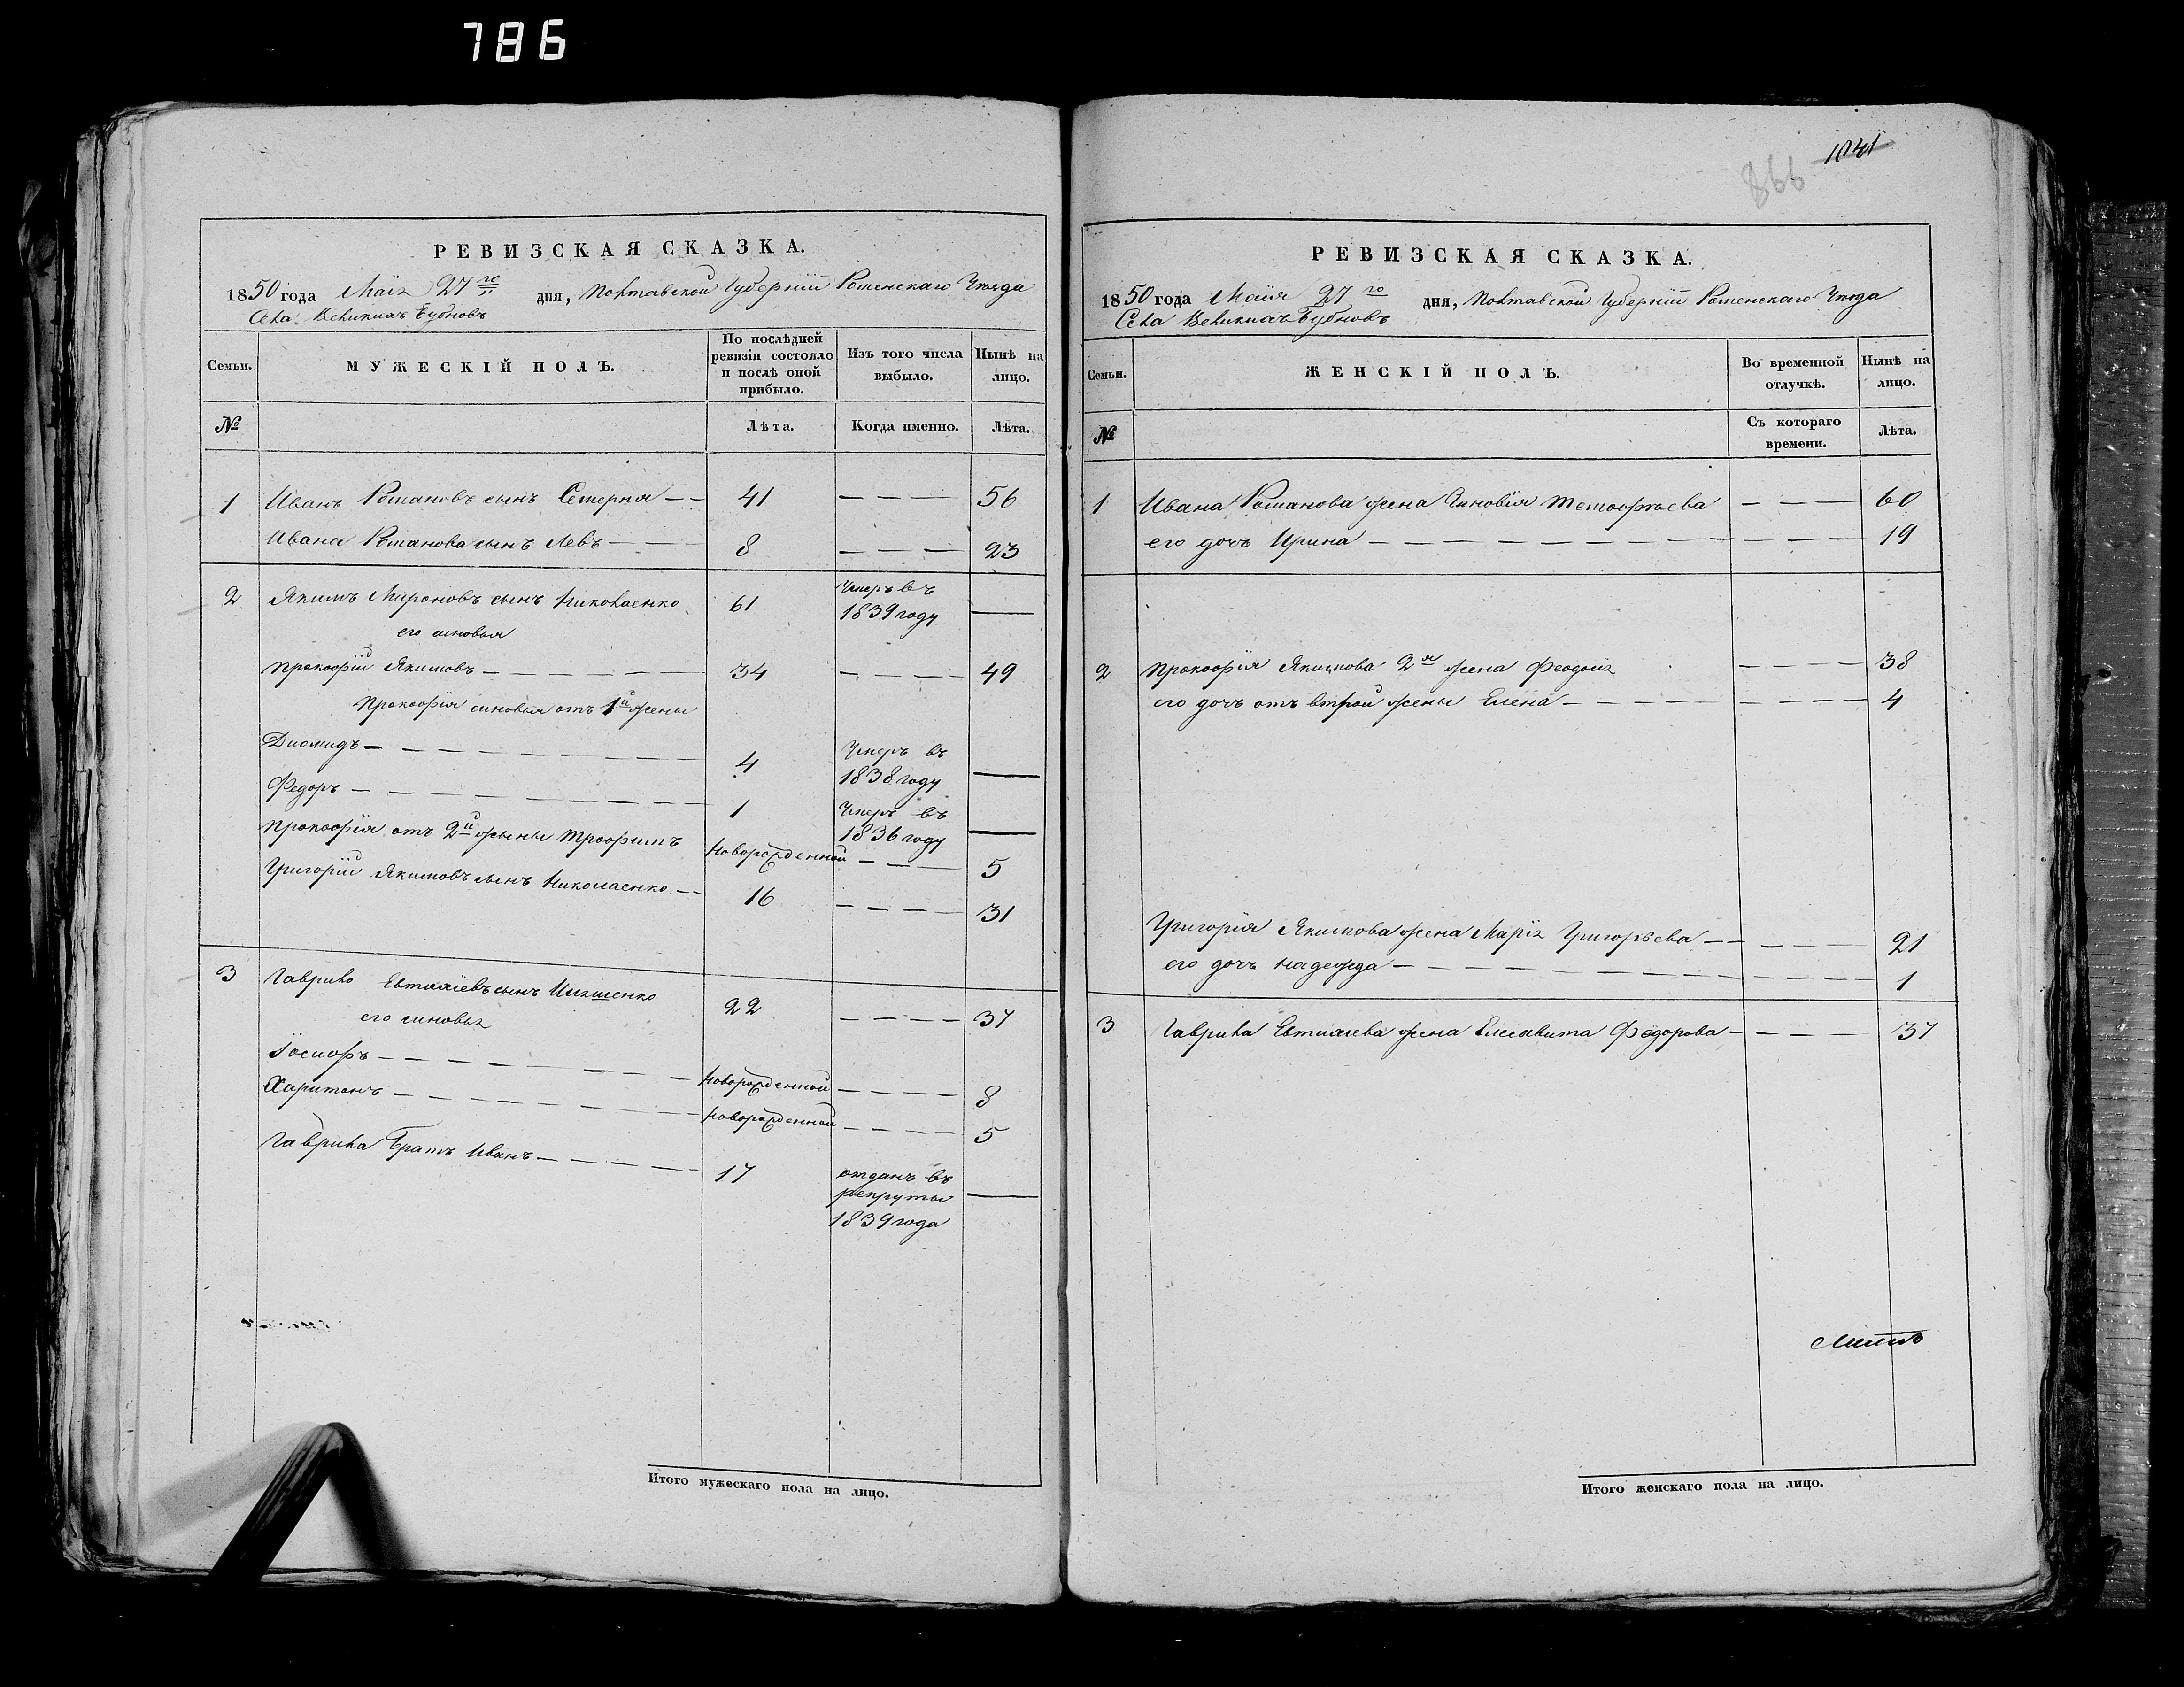 786
РЕВИЗСКАЯ СКАЗКА.
1850 года Маія 27го дня, Полтавской Губерніи Роменскаго Уѣзда
Села Великихъ Бубновъ
Семьи.
МУЖЕСКІЙ ПОЛЪ.
По послѣдней ревизіи состояло и послѣ оной прибыло.
Изъ того числа выбыло.
Нынѣ на лицо.
№
Лѣта.
Когда именно.
Лѣта.
1 Иванъ Романовъ сынъ Семерня 41 56
Ивана Романова сынъ Левъ 8 23
2 Якимъ Мироновъ сынъ Николаенко 61 Умеръ въ 1839 году
его синовья
Прокофій Якимовъ 34 49
Прокофія синовья отъ 1й жены
Диомидъ 4 Умеръ въ 1838 году
Федоръ 1 Умеръ въ 1836 году
Прокофія отъ 2й жены Трофимъ Новорожденной 5
Григорій Якимовъ сынъ Николаенко 16 31
3 Гаврило сынъ 22 37
его синовья
Іосифъ Новорожденной 8
Харитонъ Новорожденной 5
Гаврила Братъ Иванъ 17 отданъ въ рекруты 1839 года
Итого мужескаго пола на лицо.
866 1041
РЕВИЗСКАЯ СКАЗКА.
1850 года Маія 27го дня, Полтавской Губерніи Роменскаго Уѣзда
Села Великихъ Бубновъ
Семьи.
ЖЕНСКІЙ ПОЛЪ.
Во временной отлучкѣ.
Нынѣ на лицо.
№
Съ котораго времени.
Лѣта.
1 Ивана Романова жена Зиновія Тимофѣева 60
его дочъ Ирина 19
2 Прокофія Якимова 2я жена Феодосія 38
его дочъ отъ втрой жены Елена 4
Григорія Якимова жена Марія Григорьева 21
его дочъ Надежда 1
3 Гаврила жена Елисавита Федорова 37
Итого женскаго пола на лицо.